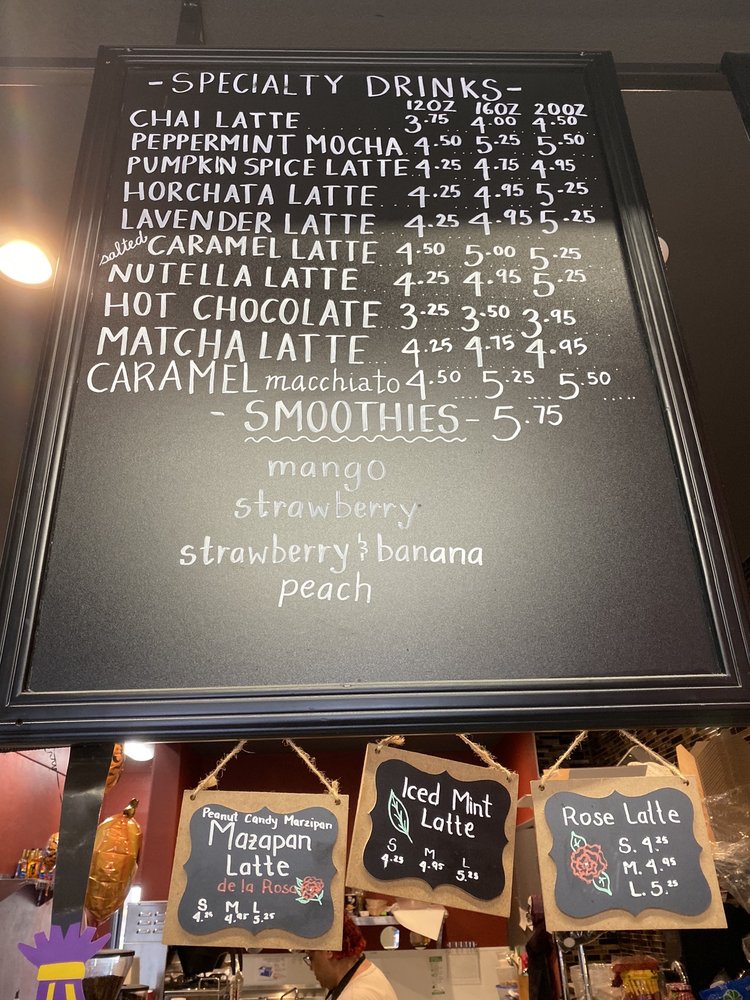 -SPECIALTY DRINKS-
12OZ 16OZ 20OZ
CHAI LATTE 3.75 4.00 4.50
PEPPERMINT MOCHA 4.50 5.25 5.50
PUMPKIN SPICE LATTE 4.25 4.75 4.95
HORCHATA LATTE 4.25 4.95 5.25
LAVENDER LATTE 4.25 4.95 5.25
salted CARAMEL LATTE 4.50 5.00 5.25
NUTELLA LATTE 4.25 4.95 5.25
HOT CHOCOLATE 3.25 3.50 3.95
MATCHA LATTE 4.25 4.75 4.95
CARAMEL macchiato 4.50 5.25 5.50
- SMOOTHIES - 5.75
mango
strawberry
strawberry & banana
peach
Peanut Candy Marzipan
Mazapan
Latte
de la Rosa
S M L
4.25 4.95 5.25
Iced Mint
Latte
S M L
4.25 4.95 5.25
Rose Latte
S. 4.25
M. 4.95
L. 5.25